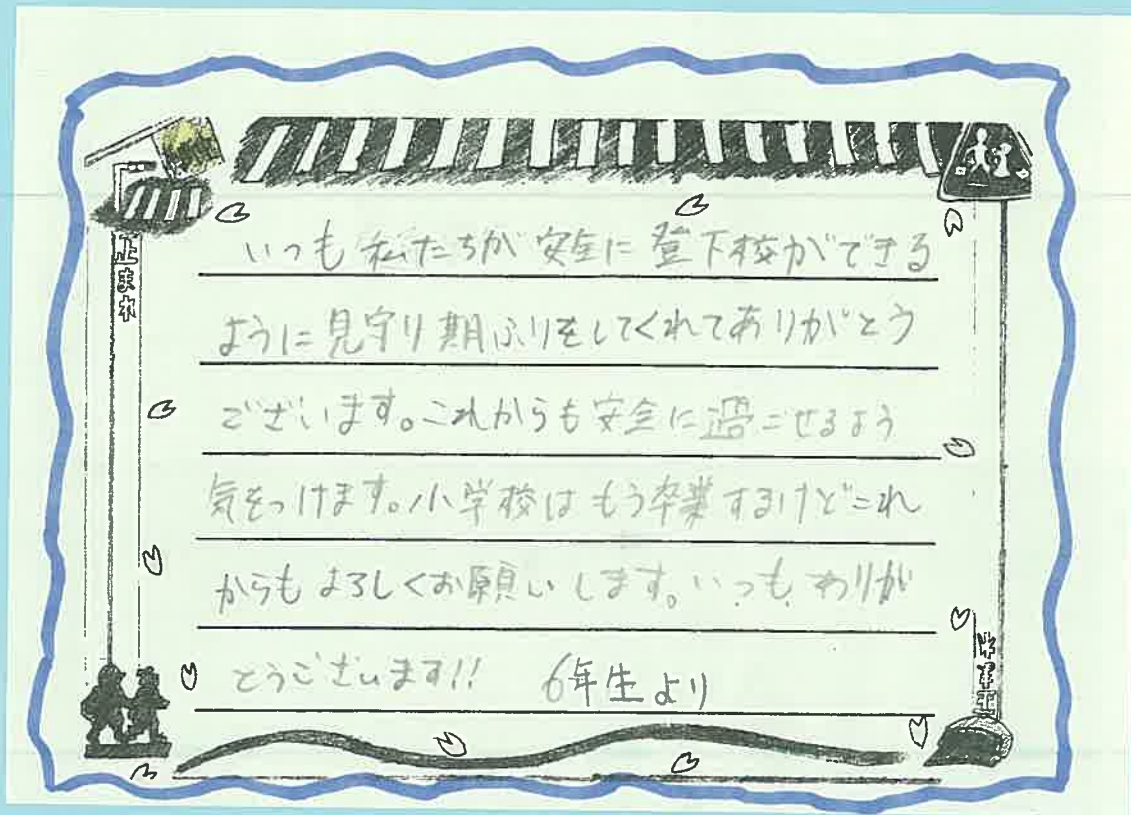 止まれ
いつも私たちが安全に登下校ができる
ように見守り期ふりをしてくれてありがとう
ございます。これからも安全に過ごせるよう
気をつけます。小学校はもう卒業するけどこれ
からもよろしくお願いします。いつもありが
とうございます!! 6年生より